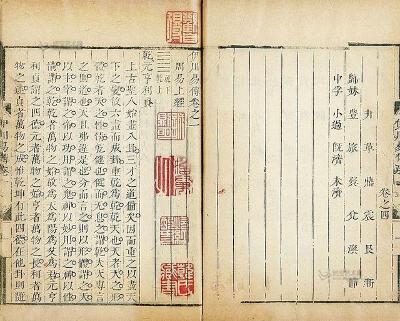 卷之四
升 革 鼎 震 艮 漸
歸妹 豐 旅 巽 兌 渙 節
中孚 小過 既濟 未濟
伊川易傳卷之一
周易上經
乾下
乾上
乾元亨利貞
上古聖人始畫八卦三才之道備矣因而重之以盡天
下之變故六畫而成卦重乾為乾乾天也天者天之形
體乾者天之性情乾健也健而无息之謂乾夫天專言
之則道也天且弗違是也分而言之則以形體謂之天
以主宰謂之帝以功用謂之鬼神以妙用謂之神以性
情謂之乾乾者萬物之始故為天為陽為父為君元亨
利貞謂之四德元者萬物之始亨者萬物之長利者萬
物之遂貞者萬物之成惟乾坤有此四德在他卦則隨